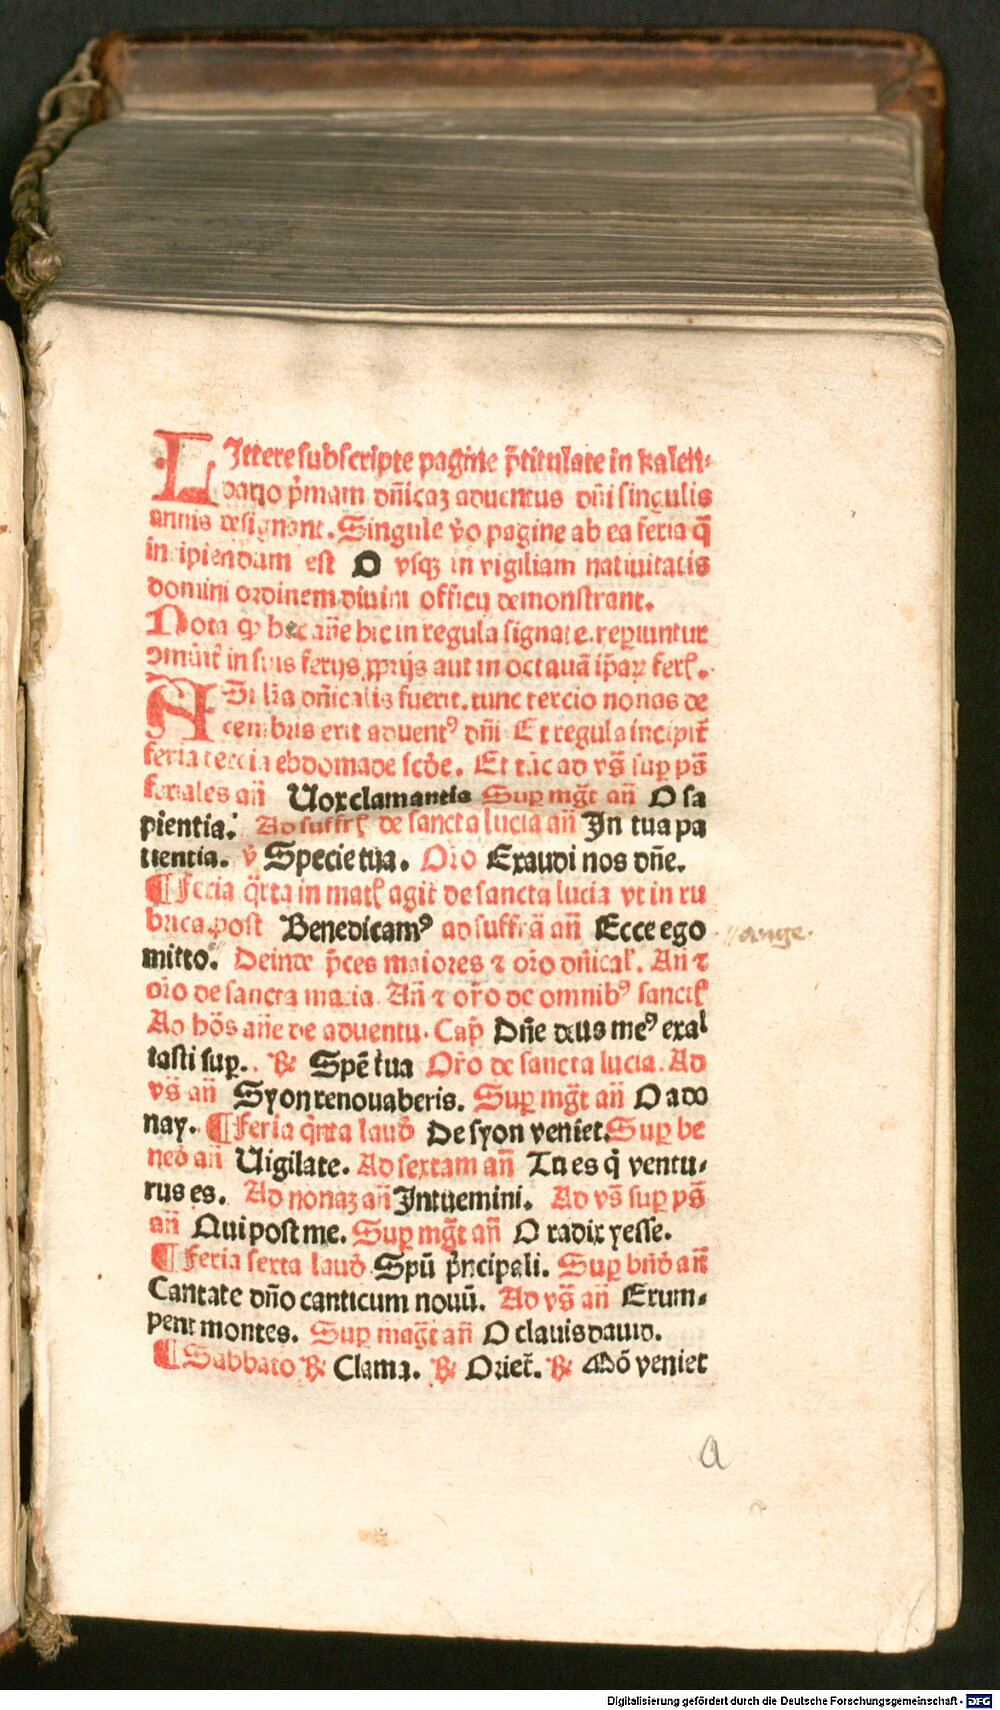 LIttere subscripte pagine p̄titulate in kalen⸗
dario p̄mam dn̄icaꝫ aduentus dn̄i singulis
annis designant. Singule v̄o pagine ab ea feria q̄
incipiendum est O vsqꝫ in vigiliam natiuitatis
domini ordinem diuini officij demonstrant.
Nota ꝙ hec an̄e hic in regula signate. reperiuntur
in suis ferijs ꝓprijs aut in octauā ip̄aꝝ
A Si lr̄a dn̄icalis fuerit. tunc tercio nonas de
cembris erit aduentꝰ dn̄i Et regula incipit̄
feria tercia ebdomade scd̄e. Et tūc ad vs̄ suꝑ ps̄
feriales an̄ Vox clamantis Suꝑ mgt̄ an̄ O sa
pientia. Ad suffrꝭ de sancta lucia an̄ In tua pa
tientia. v̄ Specie tua. Oro Exaudi nos dn̄e.
¶ Feria q̄rta in matꝭ agit̄ de sancta lucia vt in ru
brica. post Benedicamꝰ ad suffrā an̄ Ecce ego
mitto. Deinde p̄ces maiores ⁊ or̄o dn̄icaꝉ. An̄ ⁊
or̄o de sancta maria. An̄ ⁊ or̄o de omnibꝰ sanctꝭ
Ad ho᷒s an̄e de aduentu. Cap̄ Dn̄e deus meꝰ exal
tasti suꝑ. ℟ Spē tua Or̄o de sancta lucia. Ad
vs̄ an̄ Syon renouaberis. Suꝑ mgt̄ an̄ O ado
nay. ¶ Feria q̄nta laud̄ De syon veniet. Suꝑ be
ned̄ an̄ Vigilate. Ad sextam an̄ Tu es q̄ ventu⸗
rus es. Ad nonaꝫ an̄ Intuemini. Ad vs̄ suꝑ ps̄
an̄ Qui post me. Suꝑ mgt̄ an̄ O radix yesse.
¶ Feria sexta laud̄. Spū p̄ncipali. Suꝑ bn̄d̄ an̄
Cantate dn̄o canticum nouū. Ad vs̄ an̄ Erum⸗
pent montes. Suꝑ magt̄ an̄ O clauis dauid.
¶ Sabbato ℟ Clama. ℟ Oriet̄. ℟ Mō veniet
a
Digitalisierung gefördert durch die Deutsche Forschungsgemeinschaft - DFG